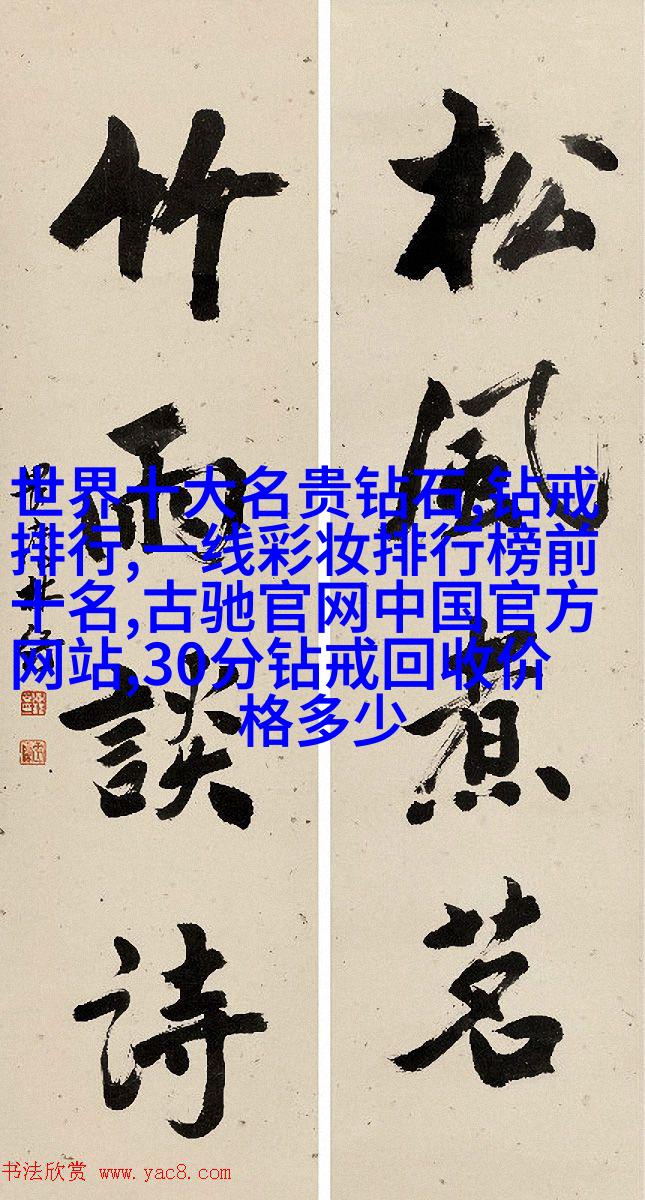 松風煮茗
竹雨談詩
世界十大名贵钻石,钻戒
排行,一线彩妆排行榜前
十名,古驰官网中国官方
网站,30分钻戒回收价
格多少
书法欣赏 www.yac8.com